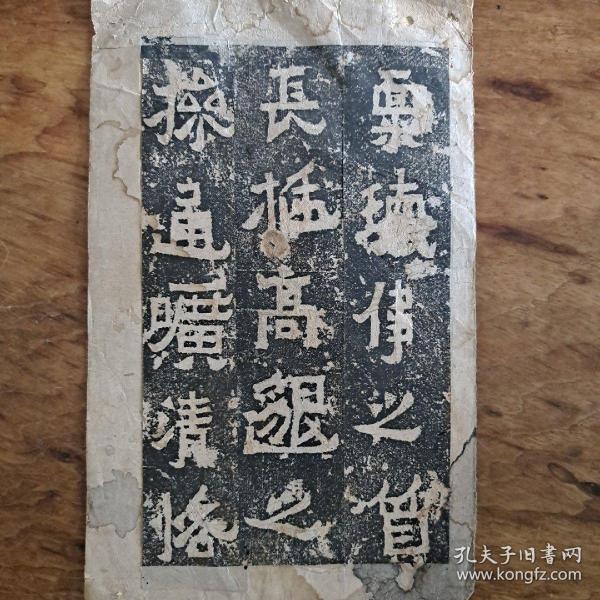 稟瓌偉之質
長挺高邈之
操通曠清恪
孔夫子旧書网
www.kongfz.com